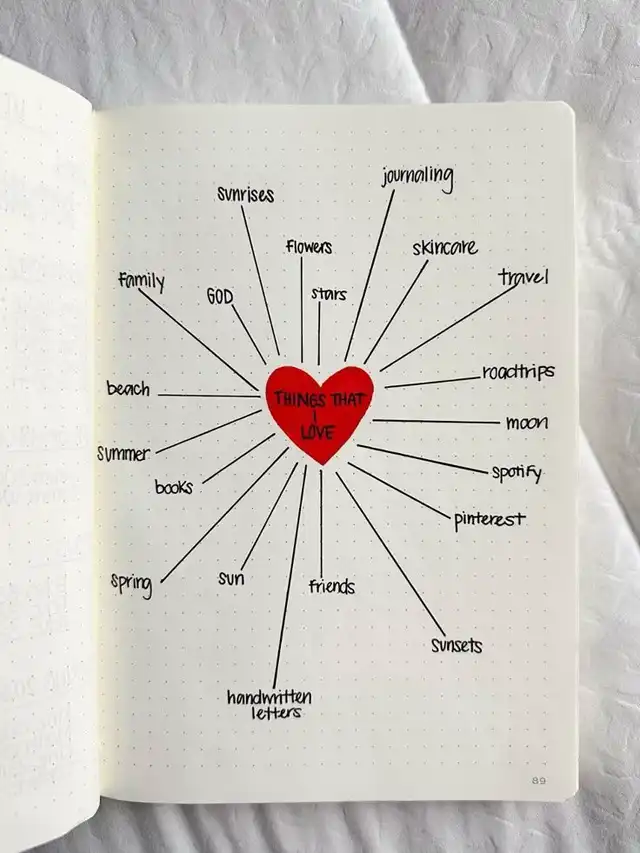 journaling
sunrises
flowers
skincare
family
GOD
stars
travel
roadtrips
beach
THINGS THAT
I
LOVE
moon
summer
books
spotify
pinterest
spring
sun
friends
sunsets
handwritten
letters
89